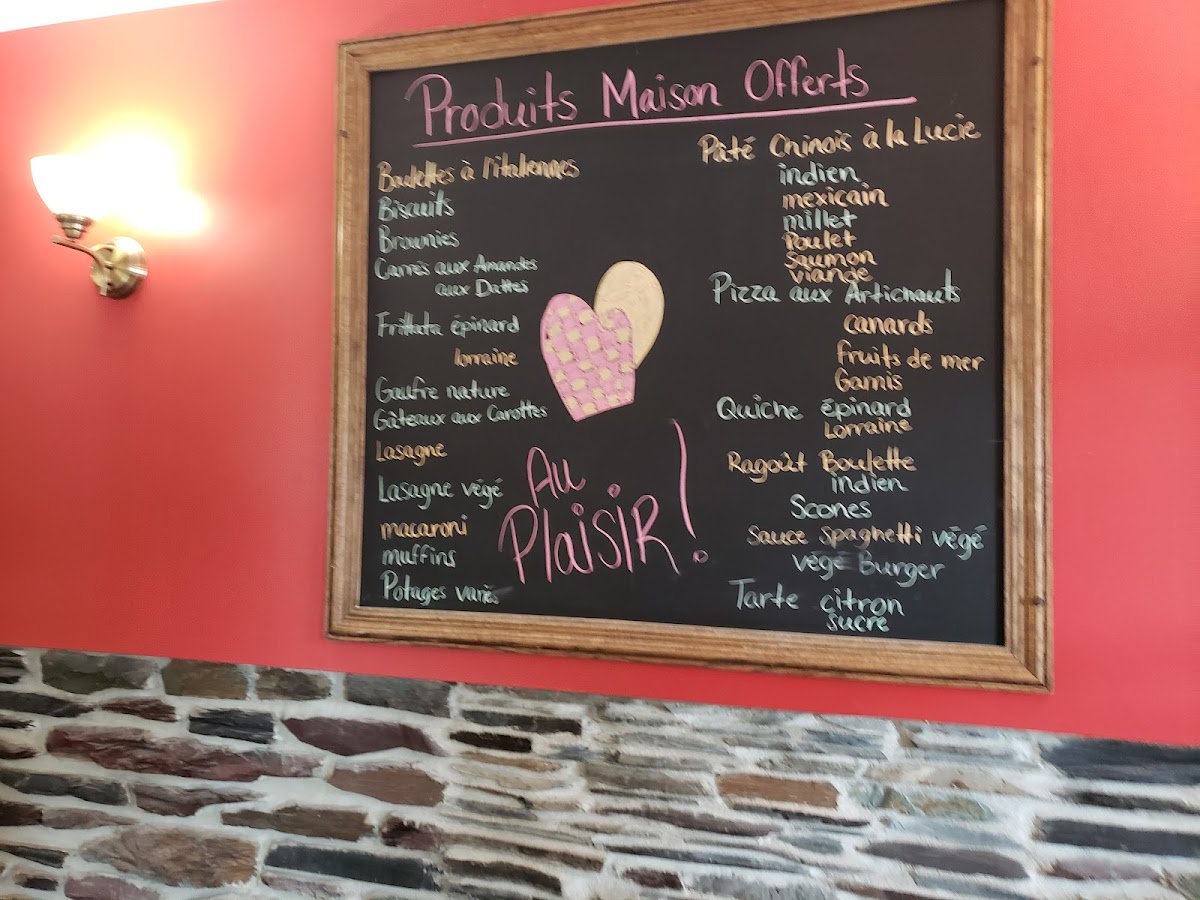 Produits Maison Offerts
Boulettes à l'italiennes
Biscuits
Brownies
Carrés aux Amandes
aux Dattes
Frittata épinard
lorraine
Gaufre nature
Gâteaux aux Carottes
Lasagne
Lasagne végé
macaroni
muffins
Potages variés
Au
Plaisir!
Pâté Chinois à la Lucie
indien
mexicain
millet
Poulet
Saumon
viande
Pizza aux Artichauts
canards
fruits de mer
Garnis
Quiche épinard
Lorraine
Ragoût Boulette
indien
Scones
Sauce spaghetti végé
végé Burger
Tarte citron
sucre